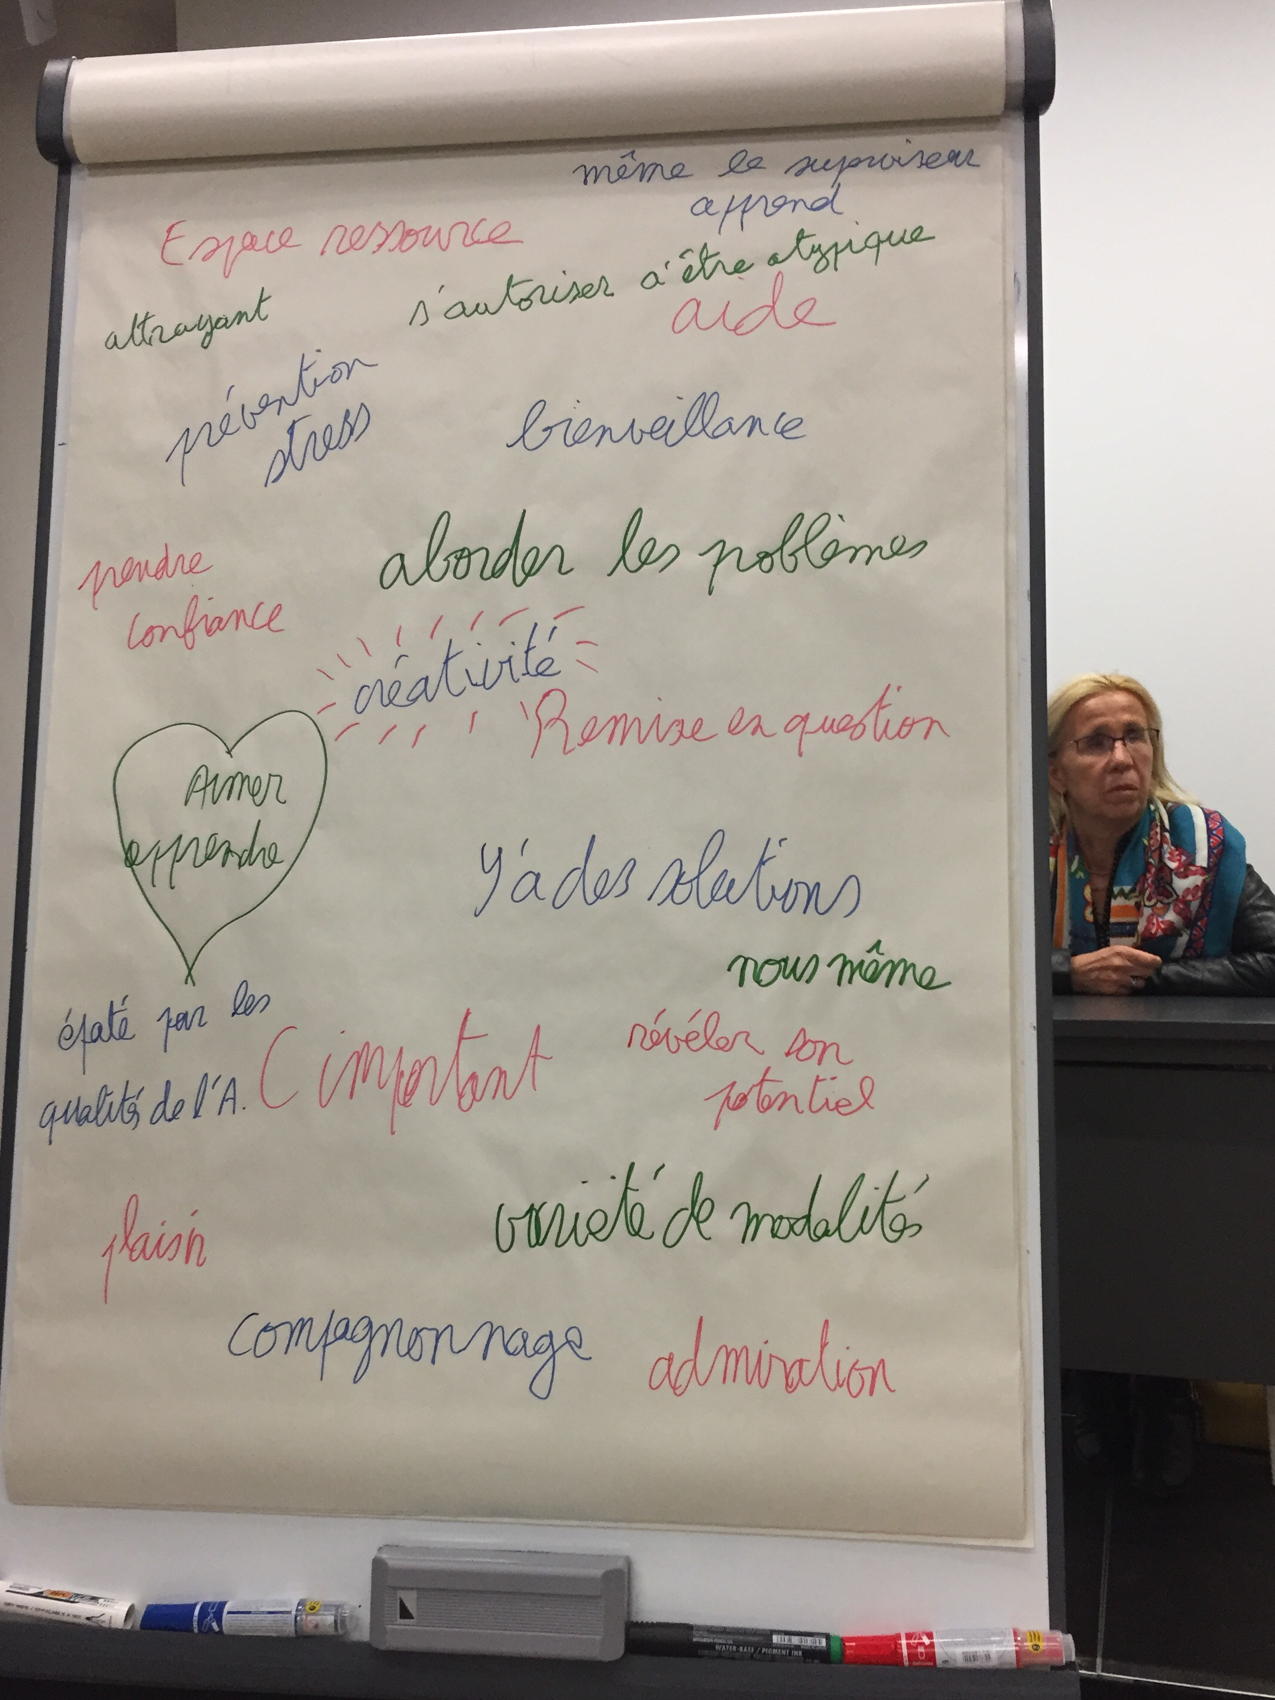 même le superviseur
apprend
Espace ressource
s'autoriser à être atypique
attrayant
aide
prévention
stress
bienveillance
aborder les problèmes
prendre
confiance
créativité
Remise en question
Aimer
apprendre
Y'a des solutions
nous même
épaté par les
qualités de l'A.
C important
révéler son
potentiel
variété de modalités
plaisir
compagnonnage
admiration
WATER-BASE / PIGMENT INK